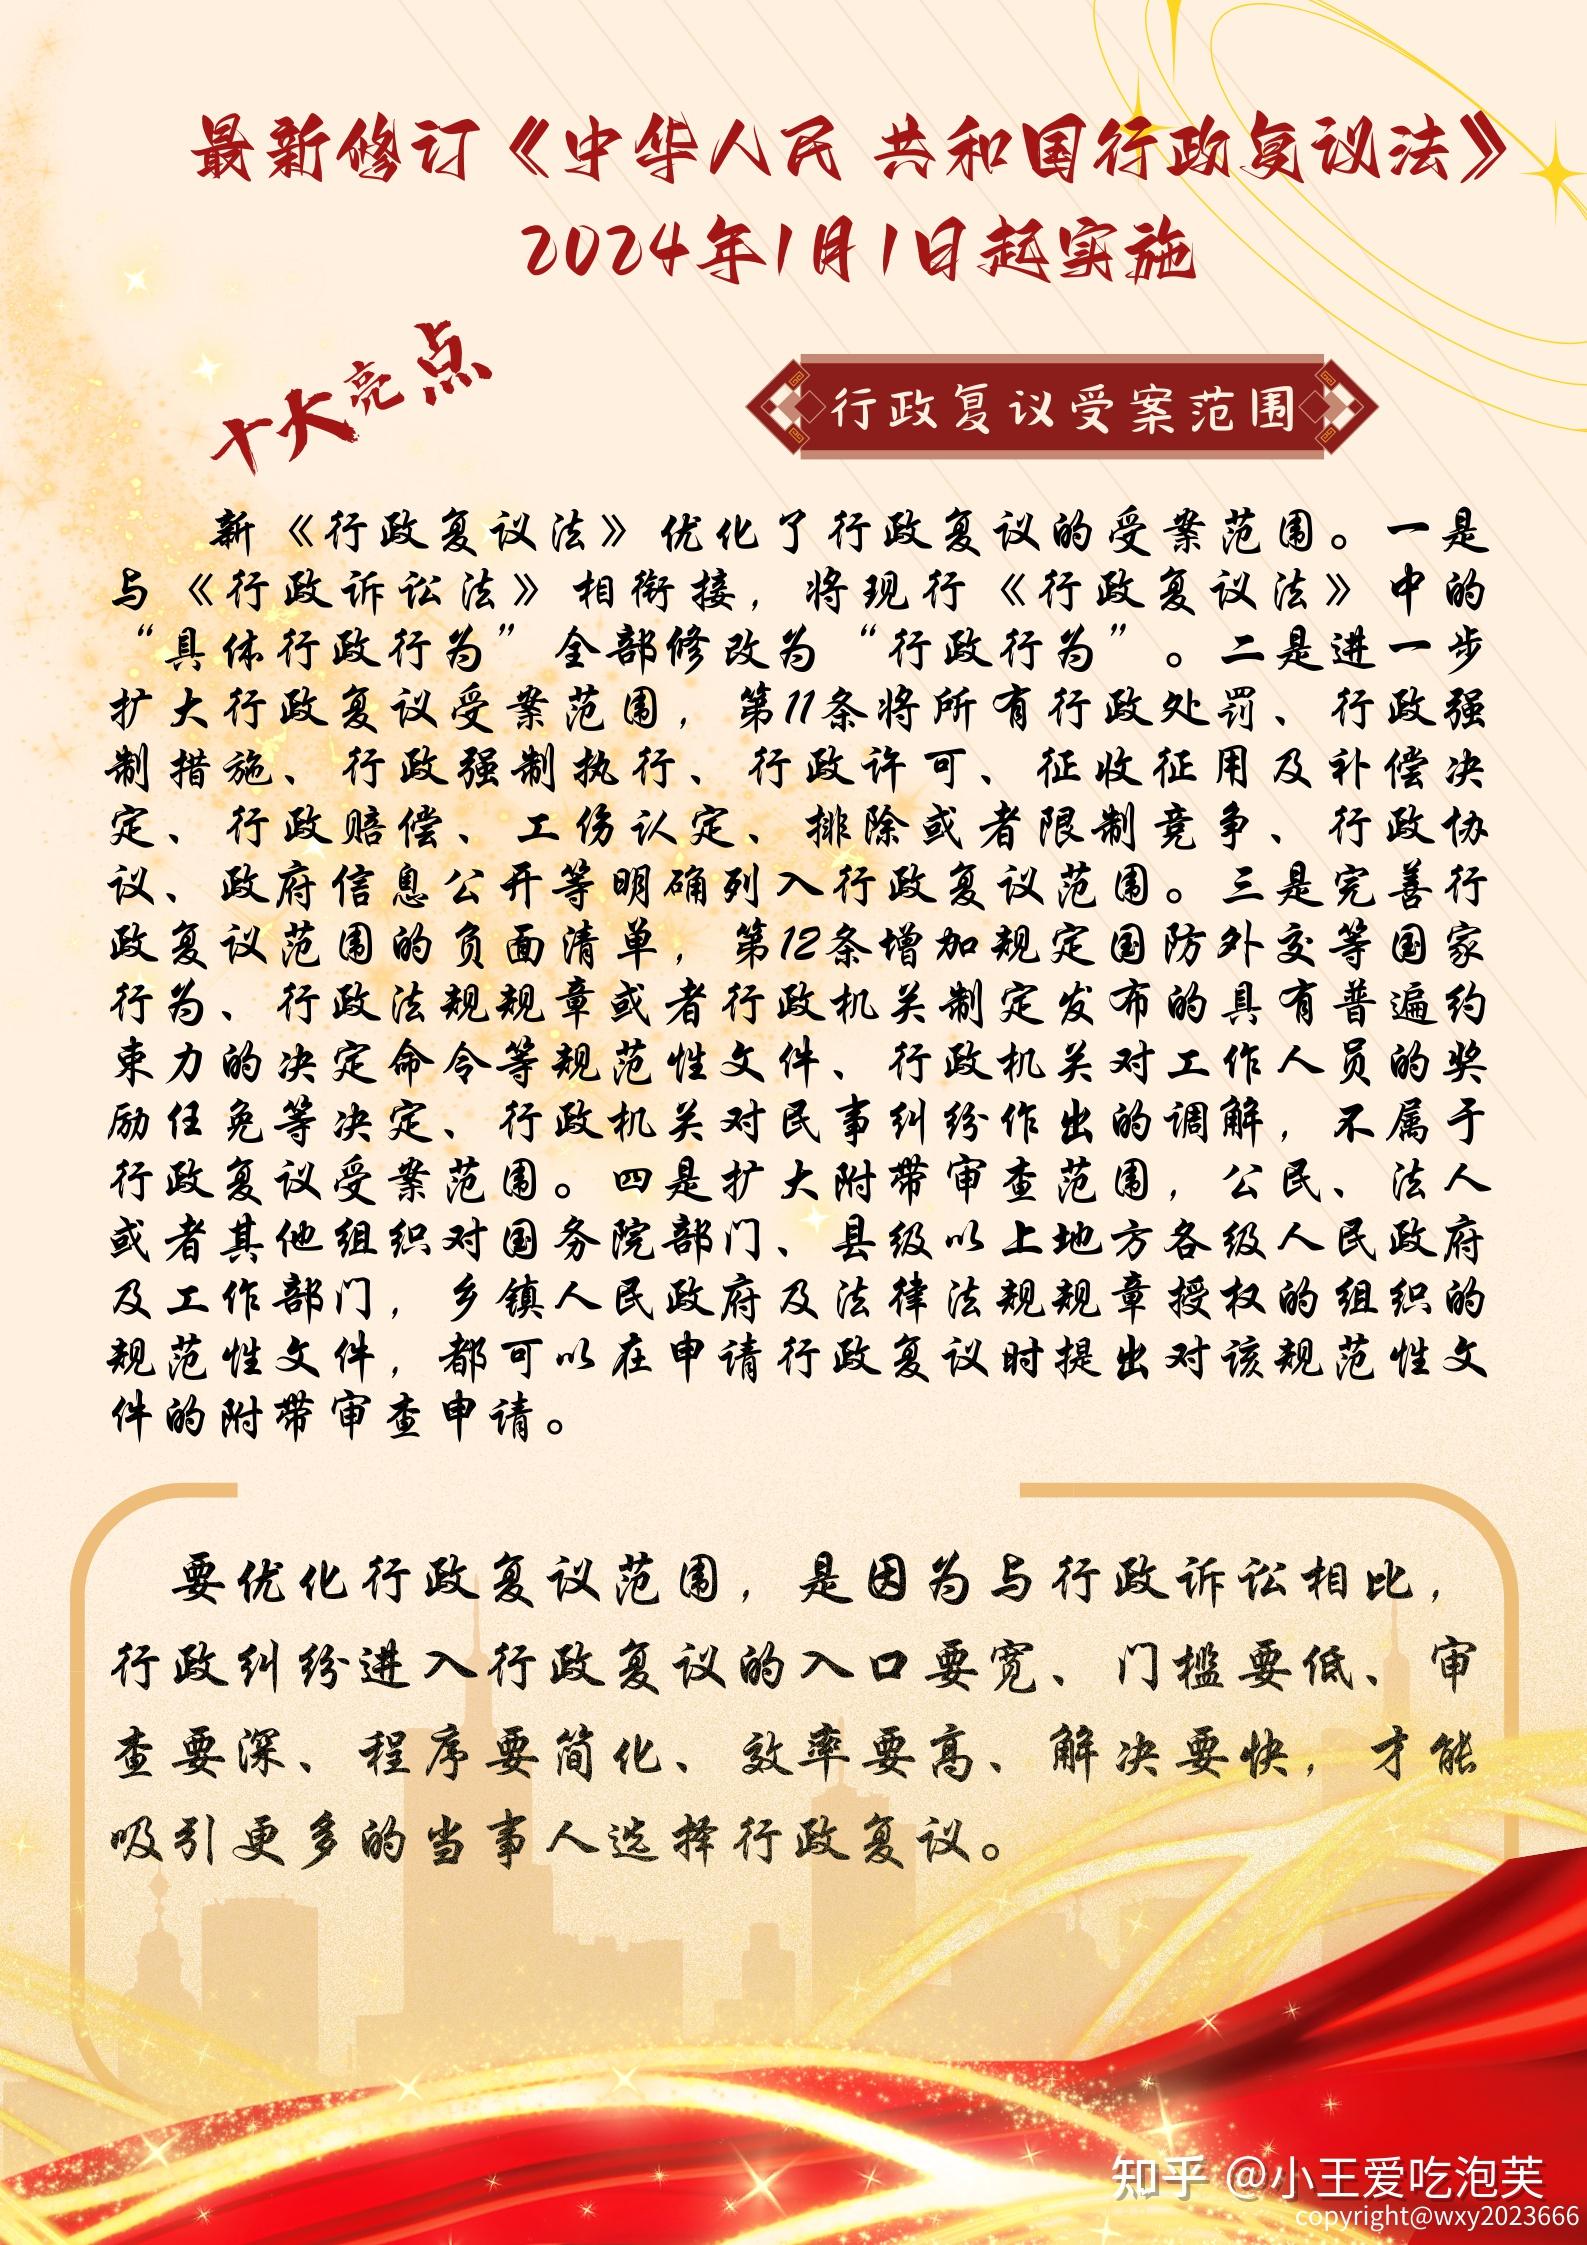 最新修订《中华人民 共和国行政复议法》
2024年1月1日起实施
十大亮点
行政复议受案范围
新《行政复议法》优化了行政复议的受案范围。一是
与《行政诉讼法》相衔接，将现行《行政复议法》中的
“具体行政行为”全部修改为“行政行为”。二是进一步
扩大行政复议受案范围，第11条将所有行政处罚、行政强
制措施、行政强制执行、行政许可、征收征用及补偿决
定、行政赔偿、工伤认定、排除或者限制竞争、行政协
议、政府信息公开等明确列入行政复议范围。三是完善行
政复议范围的负面清单，第12条增加规定国防外交等国家
行为、行政法规规章或者行政机关制定发布的具有普遍约
束力的决定命令等规范性文件、行政机关对工作人员的奖
励任免等决定、行政机关对民事纠纷作出的调解，不属于
行政复议受案范围。四是扩大附带审查范围，公民、法人
或者其他组织对国务院部门、县级以上地方各级人民政府
及工作部门，乡镇人民政府及法律法规规章授权的组织的
规范性文件，都可以在申请行政复议时提出对该规范性文
件的附带审查申请。
要优化行政复议范围，是因为与行政诉讼相比，
行政纠纷进入行政复议的入口要宽、门槛要低、审
查要深、程序要简化、效率要高、解决要快，才能
吸引更多的当事人选择行政复议。
知乎 @小王爱吃泡芙
copyright@wxy2023666